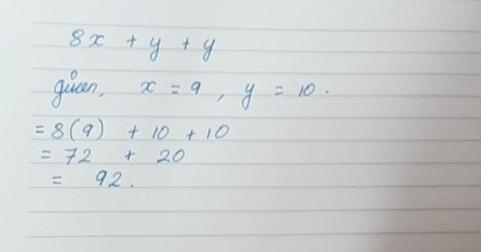 8x + y + y
given, x = 9 , y = 10 .
= 8(9) + 10 + 10
= 72 + 20
= 92.